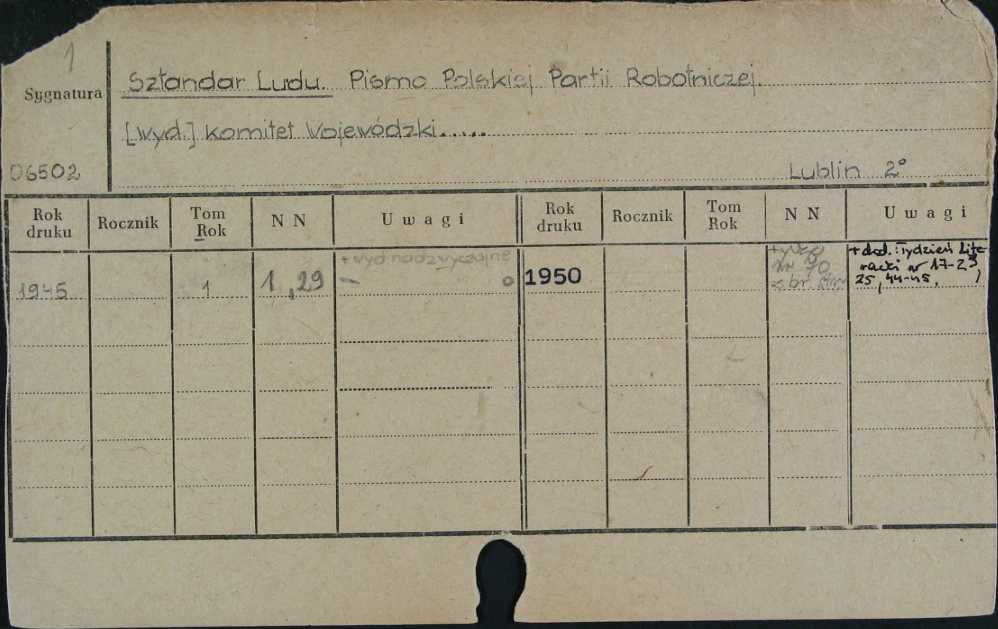 1
Sztandar Ludu. Pismo Polskiej Partii Robotniczej.
Sygnatura
[wyd.] Komitet Wojewódzki.....
06502
Lublin 2°
Rok druku Rocznik Tom Rok N N Uwagi Rok druku Rocznik Tom Rok N N Uwagi
+ wyd nadzwyczajne
1945 1 1, 29 –
1950 nr 70
+ dod.: Tydzień Lite-
racki nr 17-23,
25, 44-45,